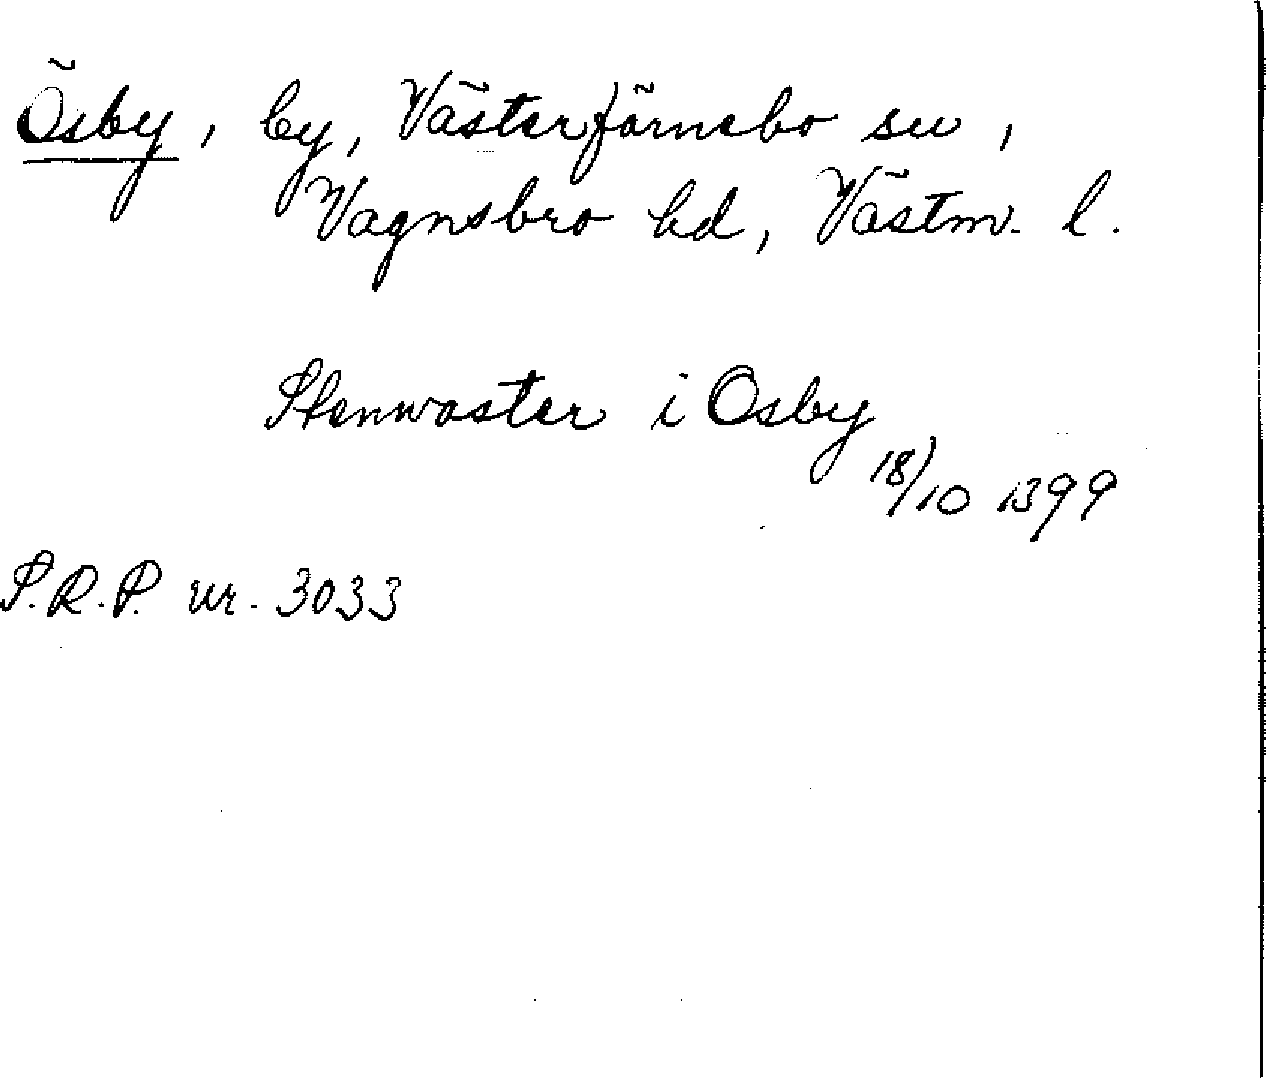 Ösby, by, Västerfärnebo sn,
Vagnsbro hd, Västm. l.
Stenwaster i Osby
18/10 1399
S.R.P. nr. 3033